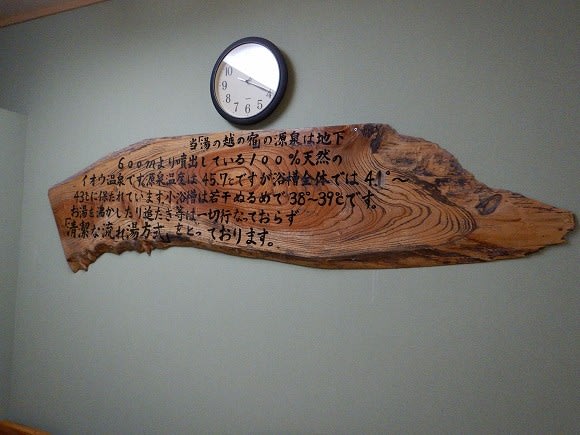 10
9
8
7
6
5
4
当「湯の越の宿の源泉は地下
600mより噴出している100%天然の
イオウ温泉です。源泉温度は45.7℃ですが浴槽全体では41°〜
43℃に保たれています。小浴槽は若干ぬるめで38°~39℃です。
お湯を沸かしたり追だき等は一切行なっておらず
「清潔な流れ湯方式」をとっております。